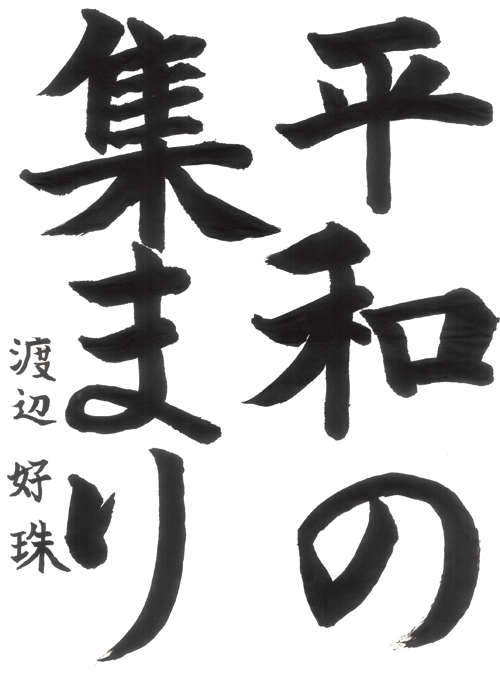 平和の
集まり
渡辺好珠